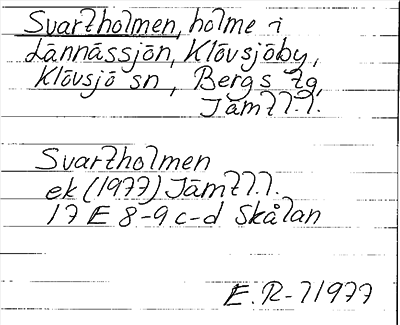 Svartholmen, holme i
Lännässjön, Klövsjöby,
Klövsjö sn, Bergs tg,
Jämtl.l.
Svartholmen
ek (1977) Jämtl.l.
17 E 8-9 c-d Skålan
E.R-71977